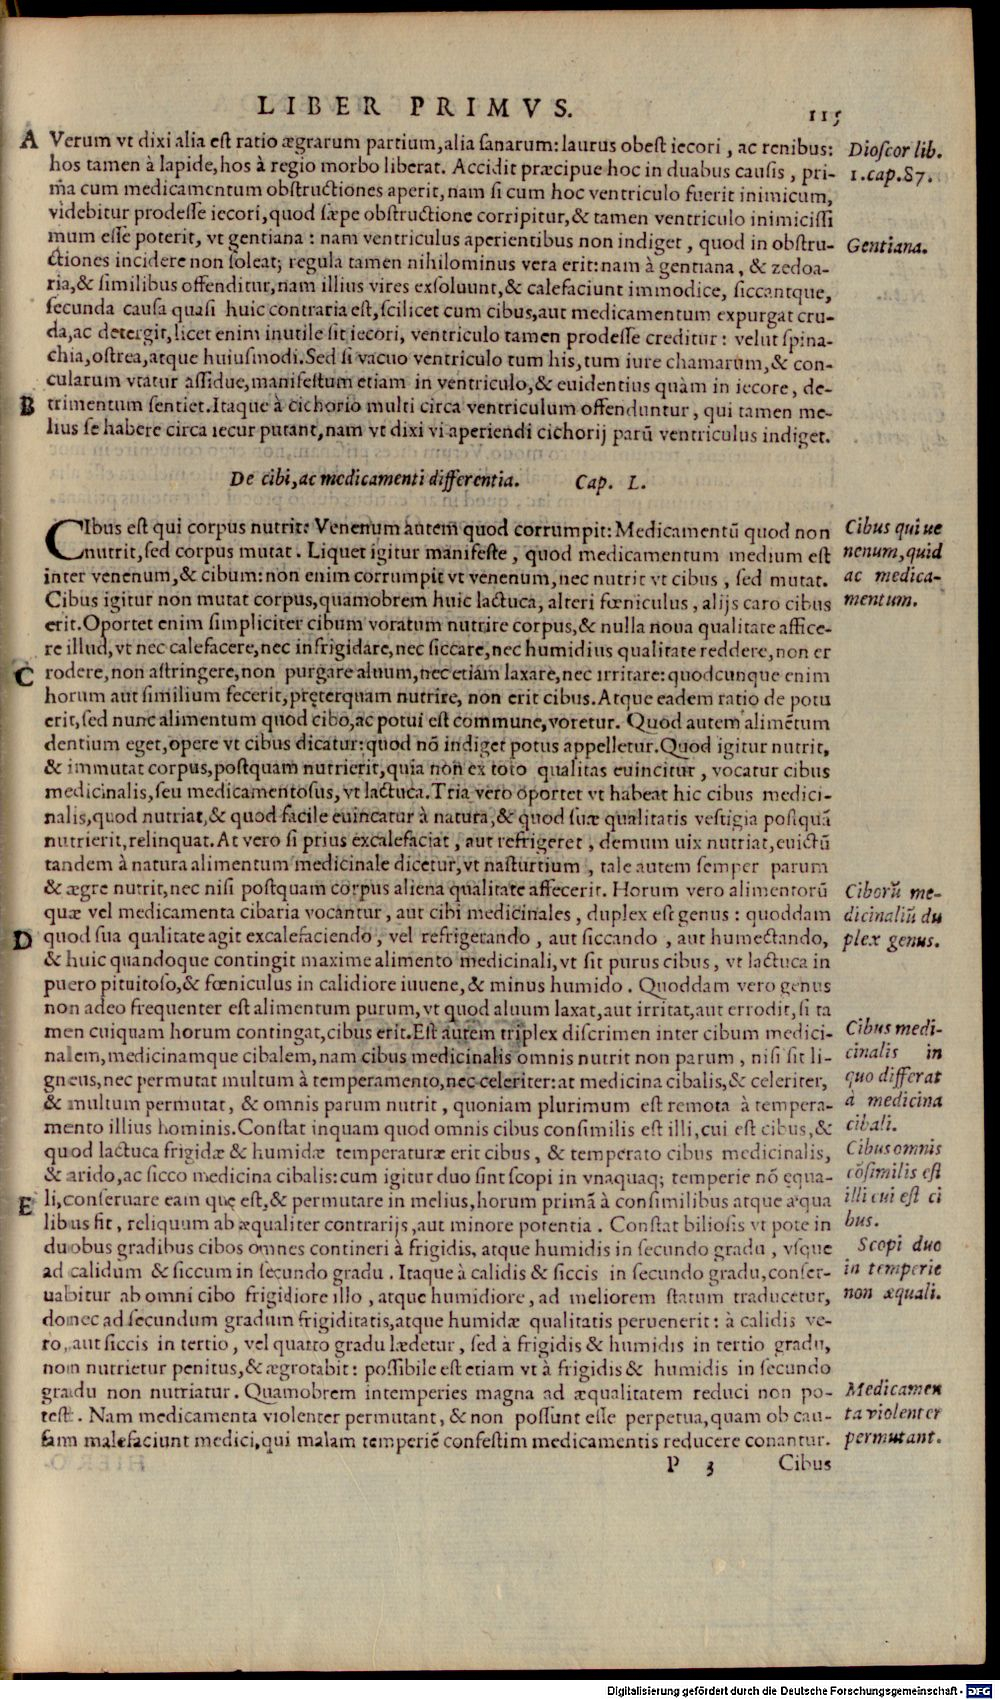 LIBER PRIMVS. 115
A Verum vt dixi alia est ratio ægrarum partium, alia sanarum: laurus obest iecori, ac renibus:
hos tamen à lapide, hos à regio morbo liberat. Accidit præcipue hoc in duabus causis, pri-
ma cum medicamentum obstructiones aperit, nam si cum hoc ventriculo fuerit inimicum,
videbitur prodesse iecori, quod sæpe obstructione corripitur, & tamen ventriculo inimicissi
mum esse poterit, vt gentiana: nam ventriculus aperientibus non indiget, quod in obstru-
ctiones incidere non soleat; regula tamen nihilominus vera erit: nam à gentiana, & zedoa-
ria, & similibus offenditur, nam illius vires exsoluunt, & calefaciunt immodice, siccantque,
secunda causa quasi huic contraria est, scilicet cum cibus, aut medicamentum expurgat cru-
da, ac detergit, licet enim inutile sit iecori, ventriculo tamen prodesse creditur: velut spina-
chia, ostrea, atque huiusmodi. Sed si vacuo ventriculo tum his, tum iure chamarum, & con-
cularum vtatur assidue, manifestum etiam in ventriculo, & euidentius quàm in iecore, de-
B trimentum sentiet. Itaque à cichorio multi circa ventriculum offenduntur, qui tamen me-
lius se habere circa iecur putant, nam vt dixi vi aperiendi cichorij parũ ventriculus indiget.
Dioscor lib.
1. cap. 87.
Gentiana.
De cibi, ac medicamenti differentia. Cap. L.
CIbus est qui corpus nutrit: Venenum autem quod corrumpit: Medicamentũ quod non
nutrit, sed corpus mutat. Liquet igitur manifeste, quod medicamentum medium est
inter venenum, & cibum: non enim corrumpit vt venenum, nec nutrit vt cibus, sed mutat.
Cibus igitur non mutat corpus, quamobrem huic lactuca, alteri fœniculus, alijs caro cibus
erit. Oportet enim simpliciter cibum voratum nutrire corpus, & nulla noua qualitate affice-
re illud, vt nec calefacere, nec infrigidare, nec siccare, nec humidius qualitate reddere, non er
C rodere, non astringere, non purgare aluum, nec etiam laxare, nec irritare: quodcunque enim
horum aut similium fecerit, pręterquam nutrire, non erit cibus. Atque eadem ratio de potu
erit, sed nunc alimentum quod cibo, ac potui est commune, voretur. Quod autem alimẽtum
dentium eget, opere vt cibus dicatur: quod nõ indiget potus appelletur. Quod igitur nutrit,
& immutat corpus, postquam nutrierit, quia non ex toto qualitas euincitur, vocatur cibus
medicinalis, seu medicamentosus, vt lactuca. Tria vero oportet vt habeat hic cibus medici-
nalis, quod nutriat, & quod facile euincatur à natura, & quod suæ qualitatis vestigia postquã
nutrierit, relinquat. At vero si prius excalefaciat, aut refrigeret, demum uix nutriat, euictũ
tandem à natura alimentum medicinale dicetur, vt nasturtium, tale autem semper parum
& ægre nutrit, nec nisi postquam corpus aliena qualitate affecerit. Horum vero alimentorũ
quæ vel medicamenta cibaria vocantur, aut cibi medicinales, duplex est genus: quoddam
D quod sua qualitate agit excalefaciendo, vel refrigerando, aut siccando, aut humectando,
& huic quandoque contingit maxime alimento medicinali, vt sit purus cibus, vt lactuca in
puero pituitoso, & fœniculus in calidiore iuuene, & minus humido. Quoddam vero genus
non adeo frequenter est alimentum purum, vt quod aluum laxat, aut irritat, aut errodit, si ta
men cuiquam horum contingat, cibus erit. Est autem triplex discrimen inter cibum medici-
nalem, medicinamque cibalem, nam cibus medicinalis omnis nutrit non parum, nisi sit li-
gneus, nec permutat multum à temperamento, nec celeriter: at medicina cibalis, & celeriter,
& multum permutat, & omnis parum nutrit, quoniam plurimum est remota à tempera-
mento illius hominis. Constat inquam quod omnis cibus consimilis est illi, cui est cibus, &
quod lactuca frigidæ & humidæ temperaturæ erit cibus, & temperato cibus medicinalis,
& arido, ac sicco medicina cibalis: cum igitur duo sint scopi in vnaquaq; temperie nõ ęqua-
E li, conseruare eam quę est, & permutare in melius, horum primã à consimilibus atque æqua
libus fit, reliquum ab æqualiter contrarijs, aut minore potentia. Constat biliosis vt pote in
duobus gradibus cibos omnes contineri à frigidis, atque humidis in secundo gradu, vsque
ad calidum & siccum in secundo gradu. Itaque à calidis & siccis in secundo gradu, conser-
uabitur ab omni cibo frigidiore illo, atque humidiore, ad meliorem statum traducetur,
donec ad secundum gradum frigiditatis, atque humidæ qualitatis peruenerit: à calidis ve-
ro, aut siccis in tertio, vel quarto gradu lædetur, sed à frigidis & humidis in tertio gradu,
non nutrietur penitus, & ægrotabit: possibile est etiam vt à frigidis & humidis in secundo
gradu non nutriatur. Quamobrem intemperies magna ad æqualitatem reduci non po-
test. Nam medicamenta violenter permutant, & non possunt esse perpetua, quam ob cau-
sam malefaciunt medici, qui malam temperiẽ confestim medicamentis reducere conantur.
Cibus qui ue
nenum, quid
ac medica-
mentum.
Ciborũ me-
dicinaliũ du
plex genus.
Cibus medi-
cinalis in
quo differat
à medicina
cibali.
Cibus omnis
cõsimilis est
illi cui est ci
bus.
Scopi duo
in temperie
non æquali.
Medicamen
ta violenter
permutant.
P 3 Cibus
Digitalisierung gefördert durch die Deutsche Forschungsgemeinschaft - DFG